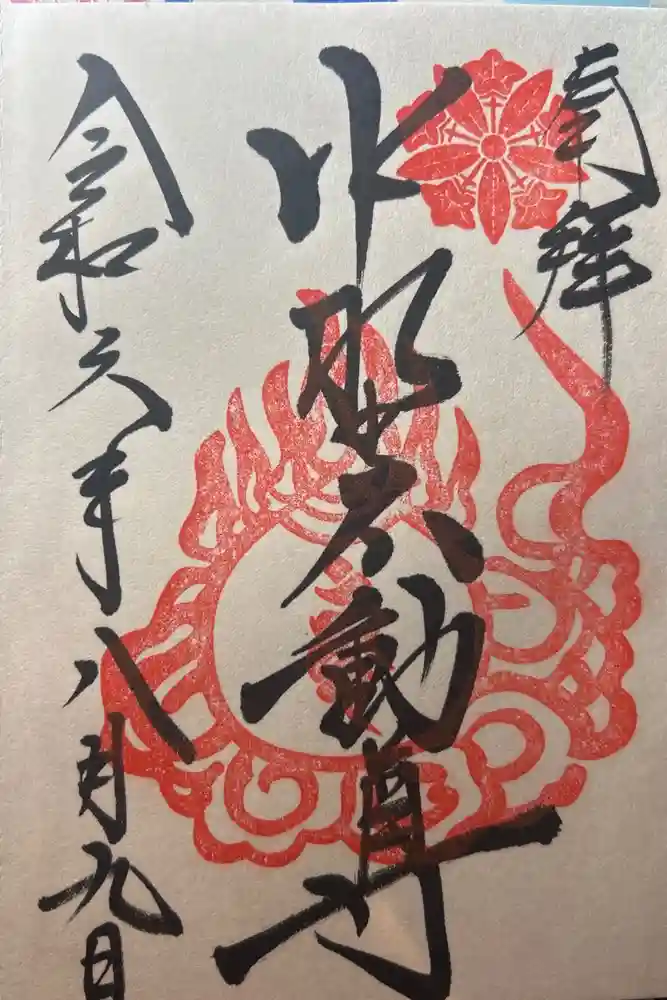 奉拝
水掛不動尊
令和六年八月九日